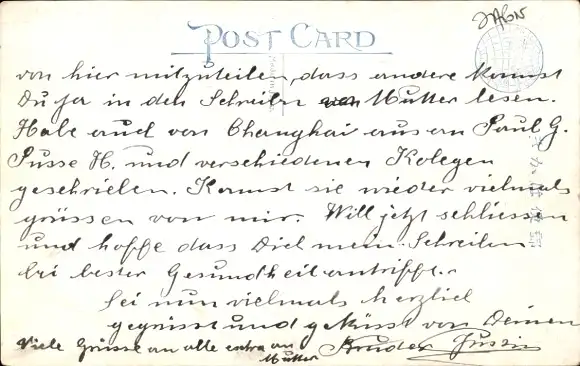 Japan
POST CARD
von hier mitzuteilen, dass andere kannst
Du ja in den Schreiben Mutter lesen.
Habe auch von Changhai aus an Paul G.
Pusse H. und verschiedenen Kolegen
geschrieben. Kannst sie wieder vielmals
grüssen von mir. Will jetzt schliessen
und hoffe dass Dich mein Schreiben
bei bester Gesundheit antrifft.
Sei nun vielmals herzlich
gegrüsst und geküsst von Deinem
Viele Grüsse an alle extra an Bruder
Mutter